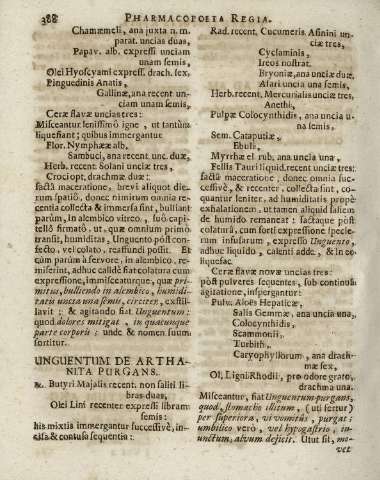 388 PHARMACOPOEIA REGIA.
Chamæmeli, ana juxta n. m.
parat. uncias duas,
Papav. alb. expressi unciam
unam semis,
Olei Hyoscyami express. drach. sex,
Pinguedinis Anatis,
Gallinæ, ana recent un-
ciam unam semis,
Ceræ flavæ uncias tres:
Misceantur lenissimo igne, ut tantùm
liquefiant; quibus immergantur
Flor. Nymphææ alb.
Sambuci, ana recent unc. duæ,
Herb. recent Solani unciæ tres,
Croci opt, drachmæ duæ:
factâ maceratione, brevi aliquot die-
rum spatiô, donec nimirum omnia re-
centia collecta & immersa sint, bulliant
parùm, in alembico vitreo, suô capi-
tellô firmatô, ut, quæ omnium primò
transit, humiditas, Unguento pòst con-
fecto, vel colato, reaffundi possit. Et
cùm parùm à fervore, in alembico, re-
miserint, adhuc calidè fiat colatura cum
expressione, immisceaturque, quæ pri-
mitus, bulliendo in alembico, humidi-
tatis uncia una semis, circiter, exstil-
lavit; & agitando fiat Unguentum:
quod dolores mitigat, in quacunque
parte corporis: unde & nomen suum
sortitur.
UNGUENTUM DE ARTHA-
NITA PURGANS.
℞. Butyri Majalis recent. non saliti li-
bras duas,
Olei Lini recenter expressi libram
semis:
his mixtis immergantur successivè, in-
cisa & contusa sequentia:
Rad. recent, Cucumeris Asinini un-
ciæ tres,
Cyclaminis,
Ireos nostrat.
Bryoniæ, ana unciæ duæ,
Asari uncia una semis,
Herb. recent. Mercurialis unciæ tres,
Anethi,
Pulpæ Colocynthidis, ana uncia u-
na semis,
Sem. Cataputiæ,
Ebuli,
Myrrhæ el. rub. ana uncia una,
Fellis Tauri liquid. recent unciæ tres:
factâ maceratione, donec omnia suc-
cessivè, & recenter, collecta sint, co-
quantur leniter, ad humiditatis propè
exhalationem, ut tamen aliquid saltem
de humido remaneat: factaque post
colaturâ, cum forti expressione specie-
rum infusarum, expresso Unguento,
adhuc liquido, calenti adde, & in eo
liquefac
Ceræ flavæ novæ uncias tres:
pòst pulveres sequentes, sub continuâ
agitatione, inspergantur:
Pulv. Aloes Hepaticæ,
Salis Gemmæ, ana uncia una,
Colocynthidis,
Scammonii,
Turbith,
Caryophyllorum, ana drach-
mæ sex,
Ol. Ligni Rhodii, pro odore grato,
drachma una.
Misceantur, fiat Unguentum purgans,
quod, stomacho illitum, (uti fertur)
per superiora, vi vomitûs, purgat:
umbilico verò, vel hypogastrio, in-
unctum, alvum dejicit. Ut ut sit, mo-
vet